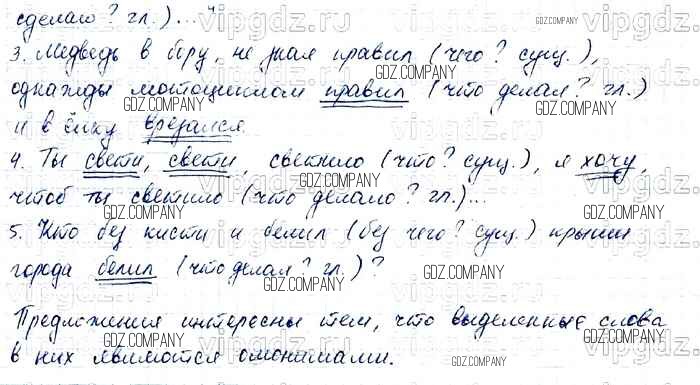 сделало? гл.)..."
3. Медведь в бору, не зная правил (чего? сущ.),
однажды мотоциклом правил (что делал? гл.)
и в ёлку врезался.
4. Ты свети, свети, светило (что? сущ.), я хочу,
чтоб ты светило (что делало? гл.)...
5. Кто без кисти и белил (без чего? сущ.) крыши
города белил (что делал? гл.)?
Предложения интересны тем, что выделенные слова
в них являются омонимами.
vipgdz.ru
GDZ.COMPANY